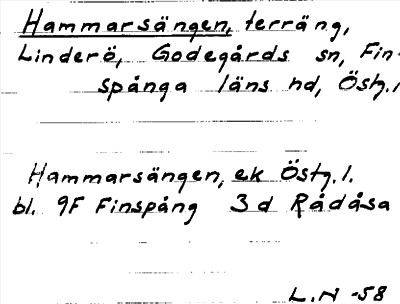 Hammarsängen, terräng,
Linderö, Godegårds sn, Fin-
spånga läns hd, Östg.l
Hammarsängen, ek Östg.l.
bl. 9F Finspång 3d Rådåsa
L.N -58